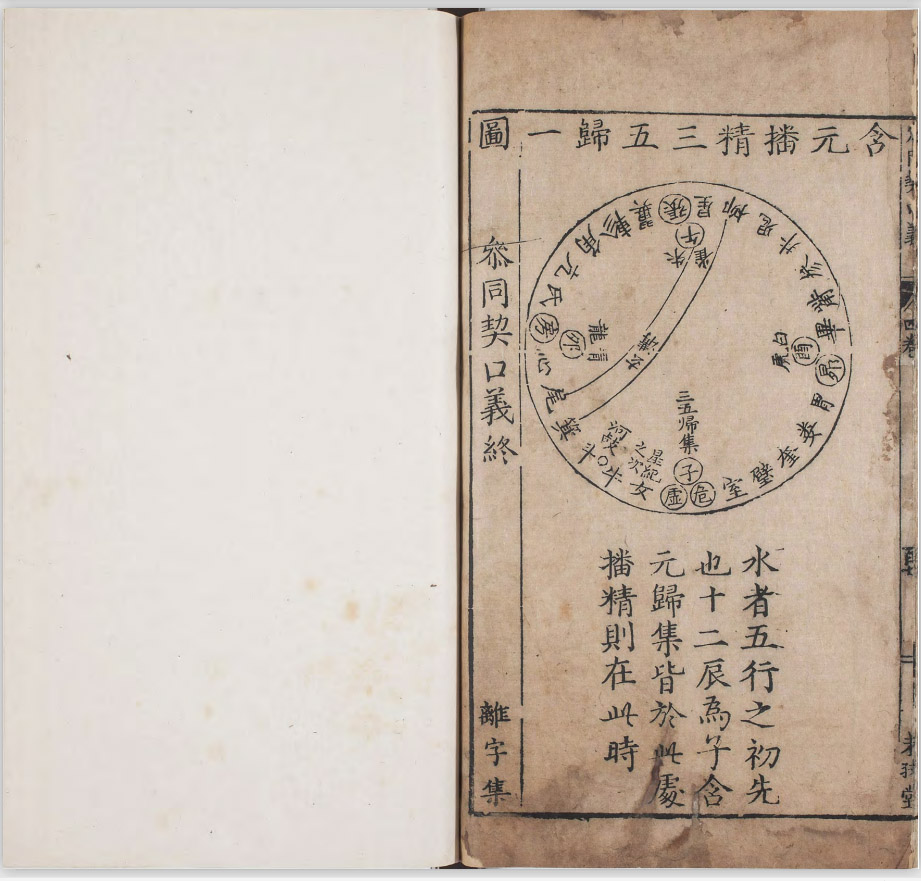 含元播精三五歸一圖
柳
星
張
翼
軫
角
亢
氐
房
心
尾
箕
斗
牛
女
虛
危
室
壁
奎
婁
胃
昴
畢
觜
參
井
鬼
午
朱雀
卯
青龍
酉
白虎
子
三五帰集
星紀
之次
水者五行之初先
也十二辰為子含
元歸集皆於此處
播精則在此時
叅同契口義終
離字集